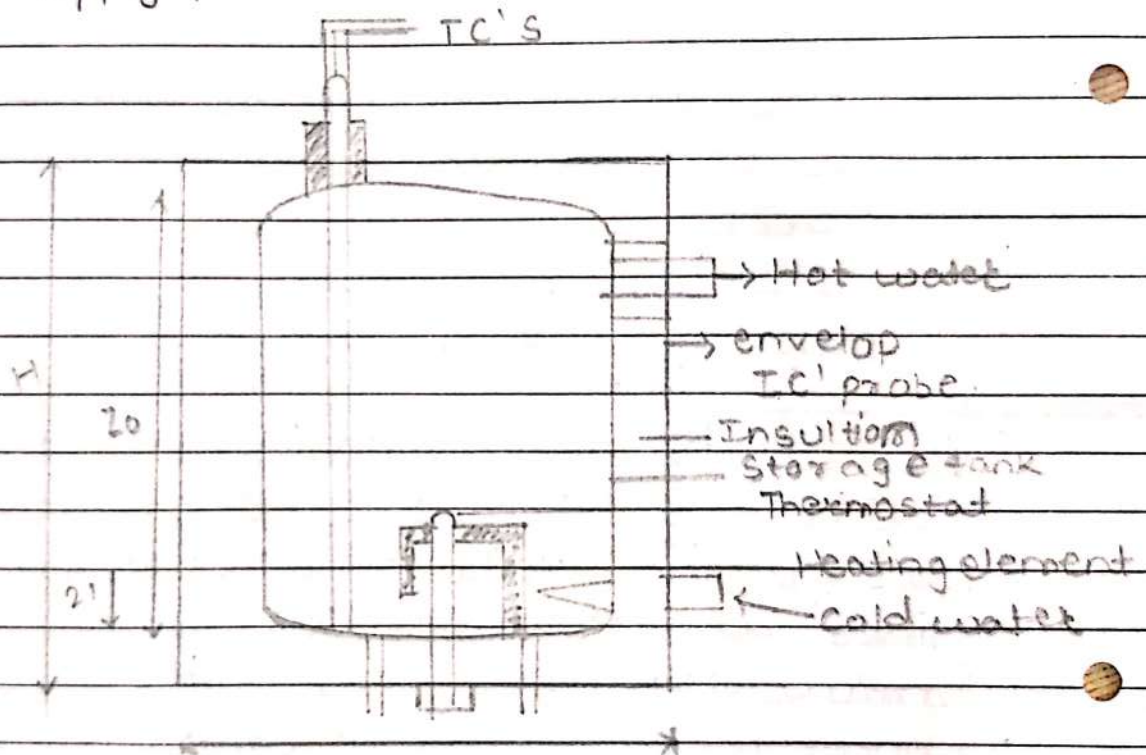 TC'S
Hot water
envelop
TC' probe.
Insultion
Storage tank
Thermostat
Heating element
cold water
H
Z0
Z1